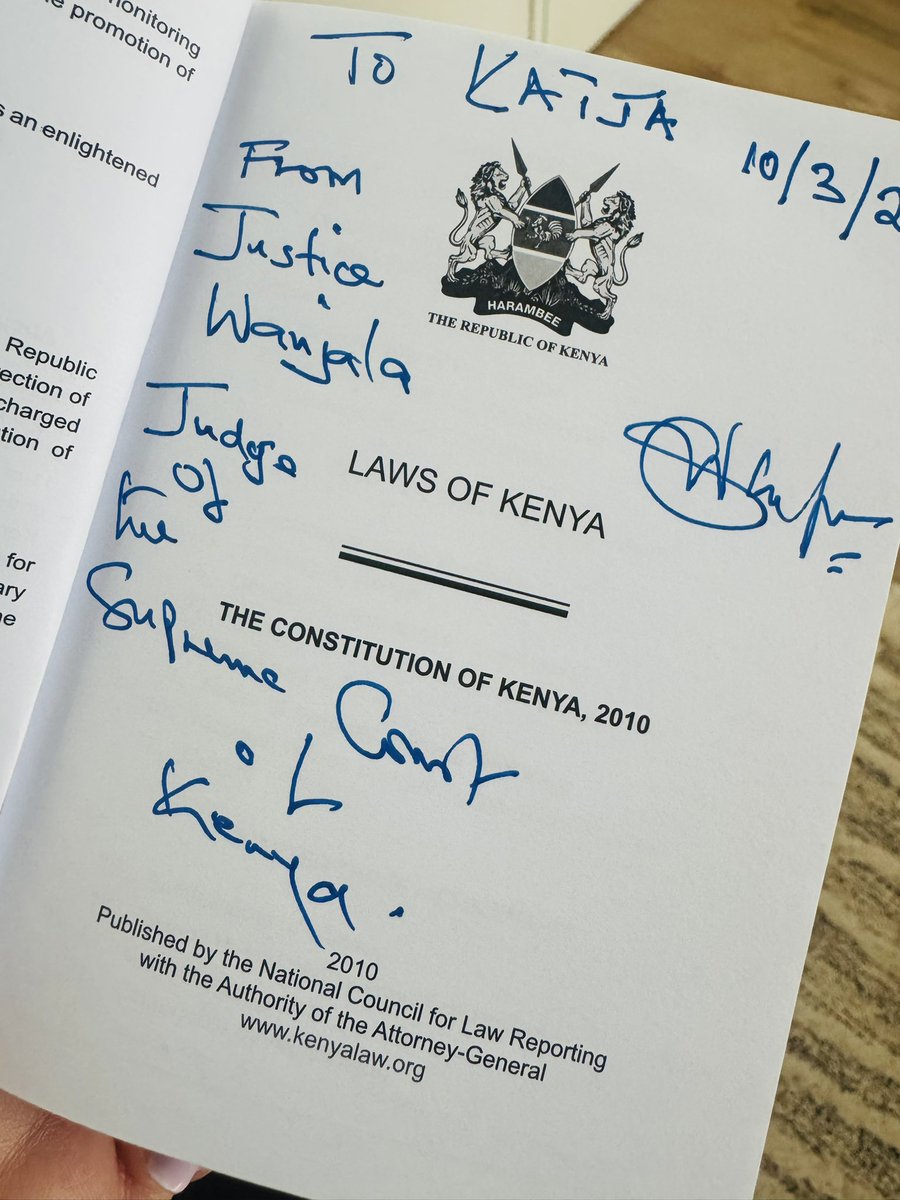 onitoring
e promotion of
an enlightened
Republic
ection of
charged
tion of
for
ary
ne
TO KATJA
10/3/2
From
Justice
Wanjala
Judge
Of
the
Supreme Court
of
Kenya.
HARAMBEE
THE REPUBLIC OF KENYA
LAWS OF KENYA
THE CONSTITUTION OF KENYA, 2010
2010
Published by the National Council for Law Reporting
with the Authority of the Attorney-General
www.kenyalaw.org